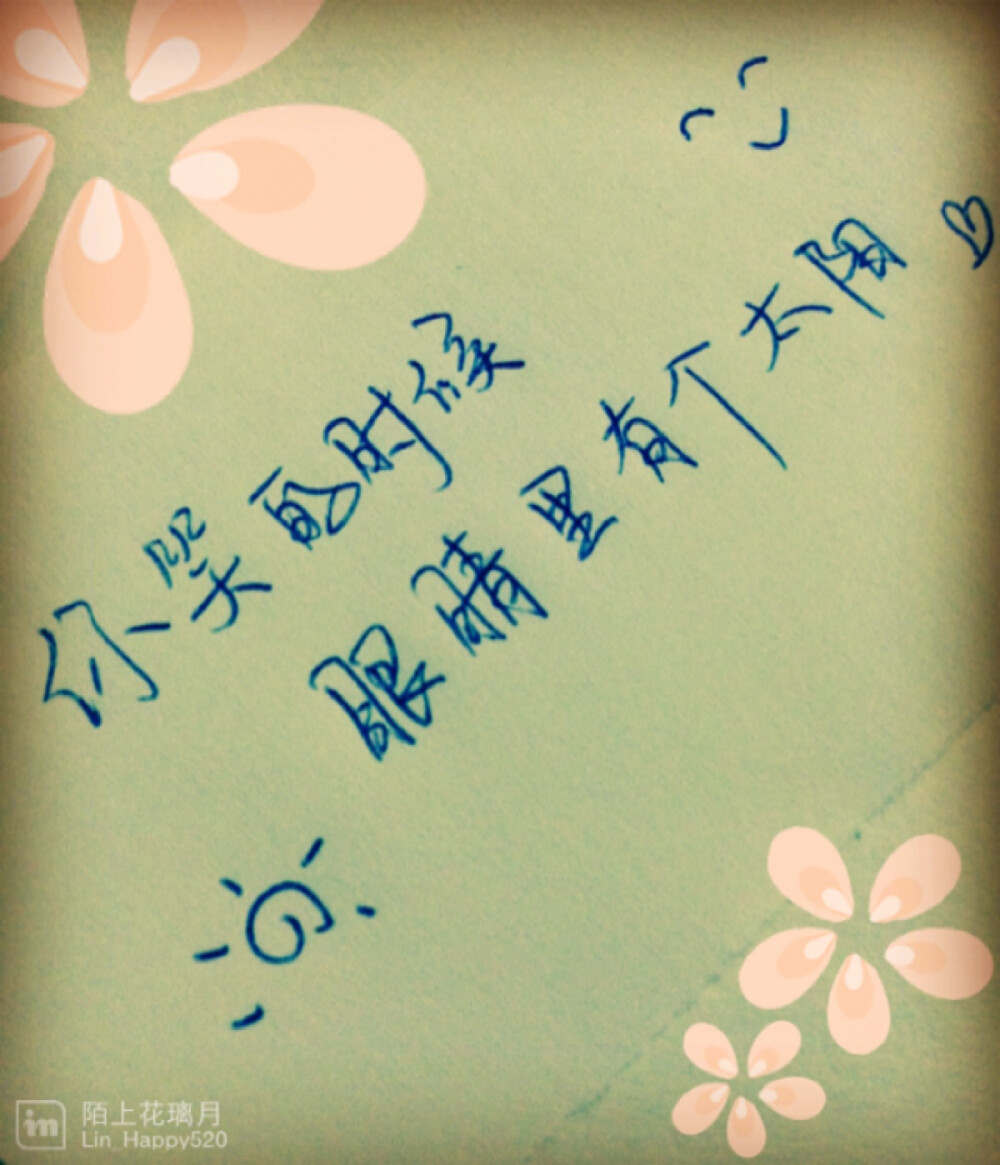 你笑的时候
眼睛里有个太阳
in
陌上花璃月
Lin_Happy520